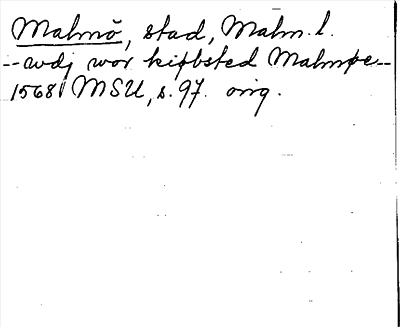 Malmö, stad, Malm. l.
-- udj wor kiøbsted Malmøe --
1568 MSU, s. 97. orig.